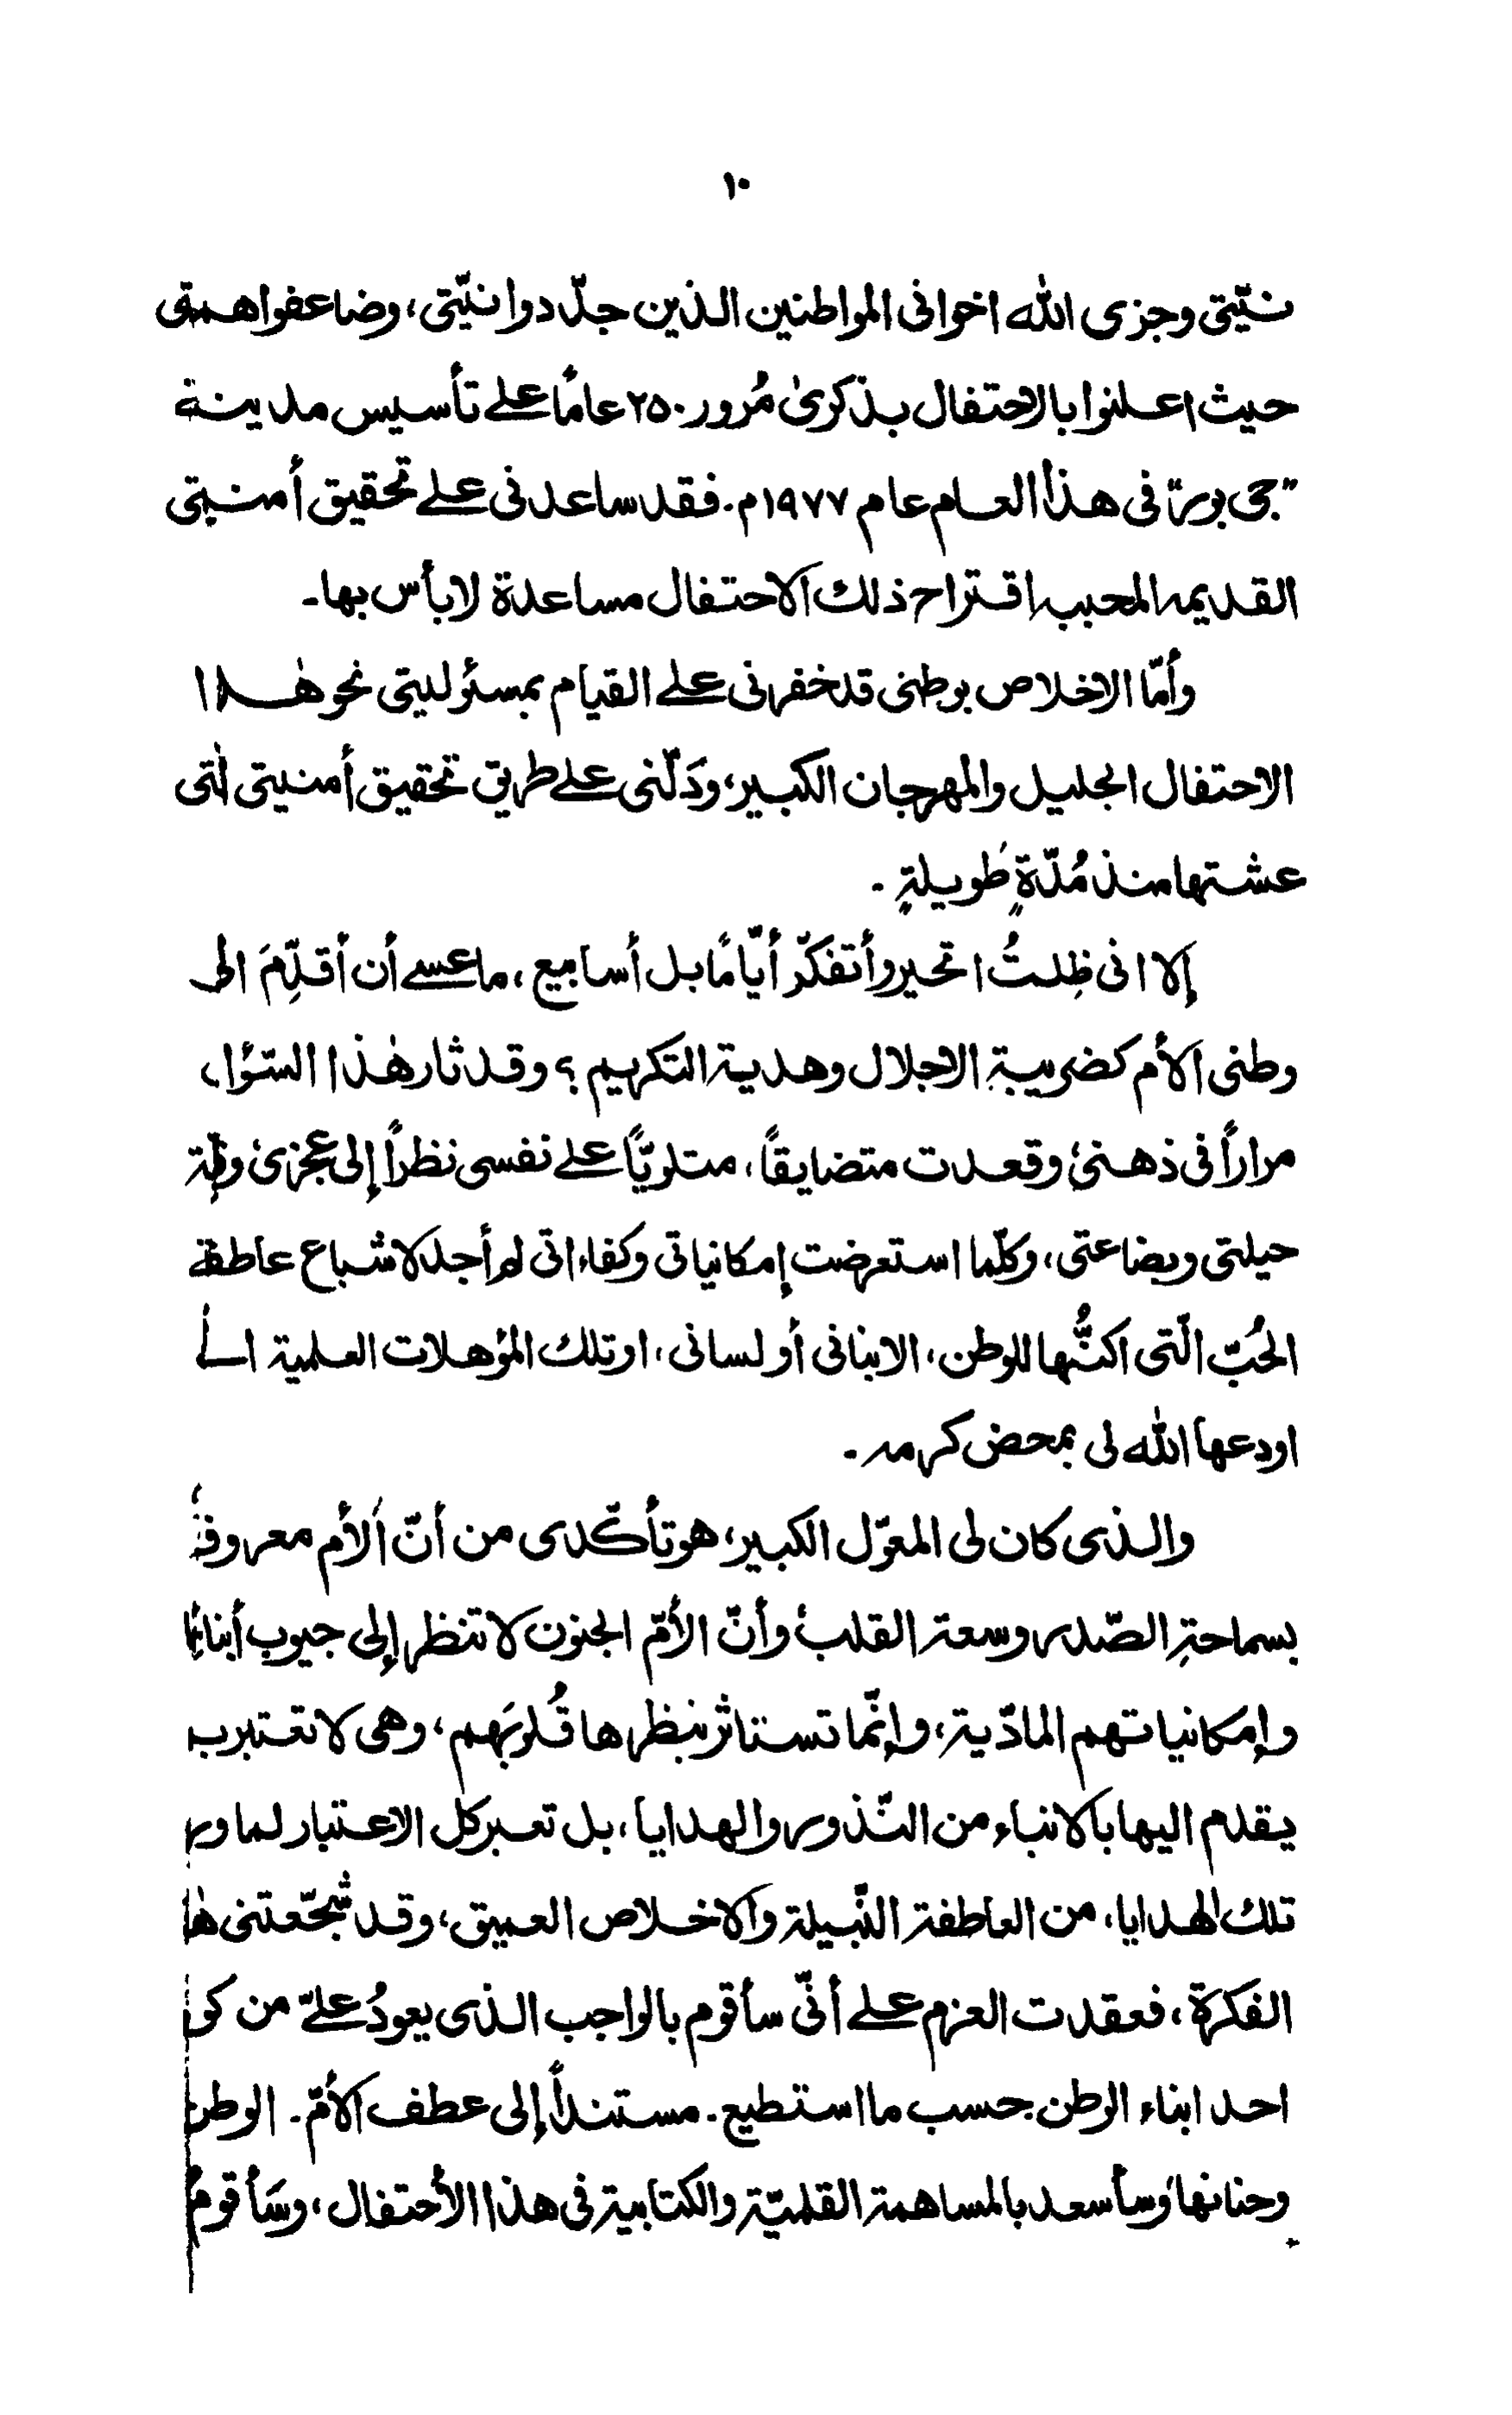 ١٠
نيّتي وجزى الله اخواني المواطنين الذين جدّدوا نيّتي، وضاعفوا همتي
حيث اعلنوا بالاحتفال بذكرىٰ مُرور ٢٥٠ عامًا على تأسيس مدينة
"جى بور" في هذا العام عام ١٩٧٧م. فقد ساعدني على تحقيق أمنيتي
القديمة المحببة اقتراح ذلك الاحتفال مساعدة لا بأس بها۔
وأمّا الاخلاص بوطني قد خفرني على القيام بمسئوليتي نحو هٰذا
الاحتفال الجليل والمهرجان الكبير، ودَلّني على طريق تحقيق أمنيتي التي
عشتها منذ مُدّةٍ طَويلةٍ ۔
إلا انى ظِلتُ اتحير وأتفكّر أيّامًا بل أسابيع، ما عسى أن أقدِّمَ الى
وطني الأم كضريبة الاجلال وهدية التكريم؟ وقد ثار هٰذا السّؤال
مراراً في ذهني وقعدت متضايقاً، متلويًّا على نفسي نظراً إلى عجزي وقلّة
حيلتي وبضاعتي، وكلّما استعرضت إمكانياتي وكفاءاتي لم أجد لاشباع عاطفة
الحُبّ الّتي اكنُّها للوطن، الا بناني أو لساني، او تلك المؤهلات العلمية
اودعها الله لي بمحض كرمه ۔
والذي كان لي المعوّل الكبير، هو تأكّدي من أنّ الأم معروفة
بسماحةِ الصّدر وسعة القلب وأنّ الأمّ الحنون لا تنظر إلى جيوب أبنائها
وإمكانياتهم المادّية، وإنّما تستاثر بنظرها قُلوبَهم، وهي لا تعتبر
يقدم اليها بالابناء من النّذور والهدايا، بل تعبر كل الاعتبار لما ور
تلك الهدايا، من العاطفة النّبيلة والاخلاص العميق، وقد شجّعتني
الفكرة، فعقدت العزم على أنّي سأقوم بالواجب الذي يعودُ عليّ من
احد ابناء الوطن حسب ما استطيع. مستنداً إلى عطف الأمّ۔ الوطن
وحنانها وسأسعد بالمساهمة القلميّة والكتابية في هذا الأحتفال، وسَأقومُ